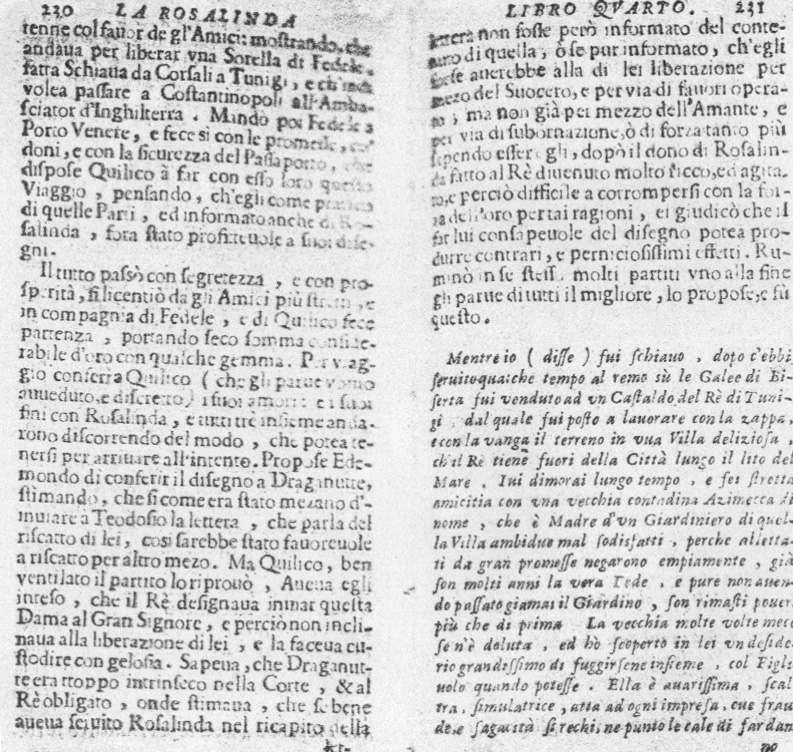 230 LA ROSALINDA
tenne col fauor de gl'Amici: mostrando, che
andaua per liberar vna Sorella di Fedele,
fatta Schiaua da Corsali a Tunigi, e ch'indi
volea passare a Costantinopoli all'Amba-
sciator d'Inghilterra. Mandò poi Fedele a
Porto Venere, e fece sì con le promesse, co'
doni, e con la sicurezza del Passaporto, che
dispose Quilico à far con esso loro questo
Viaggio, pensando, ch'egli come pratico
di quelle Parti, ed informato anche di Ro-
salinda, fora stato profitteuole a suoi dise-
gni.
Il tutto passò con segretezza, e con pro-
sperità, si licentiò da gli Amici più stretti, e
in compagnia di Fedele, e di Quilico fece
partenza, portando seco somma conside-
rabile d'oro con qualche gemma. Per viag-
gio conferìa Quilico (che gli parue vomo
aueduto, e discreto) i suoi amori: e i suoi
fini con Rosalinda, e tutti trè insieme anda-
rono discorrendo del modo, che potea te-
nersi per arriuare all'intento. Propose Ede-
mondo di conferir il disegno a Draganutte,
stimando, che si come era stato mezano d'-
inuiare a Teodosio la lettera, che parla del
riscatto di lei, così sarebbe stato fauoreuole
a riscatto per altro mezo. Ma Quilico, ben
ventilato il partito lo riprouò, Aueua egli
inteso, che il Rè designaua inuiar questa
Dama al Gran Signore, e perciò non incli-
naua alla liberazione di lei, e la faceua cu-
stodire con gelosia. Sapeua, che Draganut-
te era troppo intrinseco nella Corte, & al
Rè obligato, onde stimaua, che se bene
aueua seruito Rosalinda nel ricapito della
let-
LIBRO QVARTO. 231
lettera non fosse però informato del conte-
nuto di quella, ò se pur informato, ch'egli
forse auerebbe alla di lei liberazione per
mezo del Suocero, e per via di fauori opera-
to; ma non già per mezzo dell'Amante, e
per via di subornazione, ò di forza tanto più
sapendo esser egli, dopò il dono di Rosalin-
da fatto al Rè diuenuto molto ricco, ed agita-
to, e perciò difficile a corrompersi con la for-
za dell'oro per tai ragioni, ei giudicò che il
far lui consapeuole del disegno potea pro-
durre contrari, e perniciosissimi effetti. Ru-
minò in se stesso molti partiti vno alla fine
gli parue di tutti il migliore, lo propose, e fù
questo.
Mentre io (disse) fui schiauo, dopo c'ebbi
seruito qualche tempo al remo sù le Galee di Bi-
serta fui venduto ad vn Castaldo del Rè di Tuni-
gi dal quale fui posto a lauorare con la zappa,
e con la vanga il terreno in vna Villa deliziosa,
ch'il Rè tiene fuori della Città lungo il lito del
Mare. Iui dimorai lungo tempo, e fei stretta
amicitia con vna vecchia contadina Azimecca di
nome, che è Madre d'vn Giardiniero di quel-
la Villa ambidue mal sodisfatti, perche alletta-
ti da gran promesse negarono empiamente, già
son molti anni la vera Fede, e pure non auen-
do passato giamai il Giardino, son rimasti poueri
più che di prima La vecchia molte volte meco
se n'è doluta, ed hò scoperto in lei vn deside-
rio grandissimo di fuggirsene insieme, col Figli-
uolo quando potesse. Ella è auarissima, scal-
tra, simulatrice, atta ad ogni impresa, cue frau
de, e sagacità si rechi, ne punto le cale di far dan
no